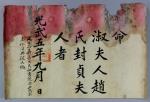 命
淑夫人趙
氏封貞夫
人者
光武五年九月 日